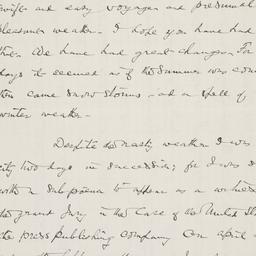 swift and easy voyage and presumably
pleasanter weather. I hope you have had
this. We have had great changes. For
days it seemed as if the summer was come
then came snow storms - and a spell of
winter weather.
Despite the nasty weather I was
city two days in succession; for I was
with a subpoena to appear as a witness
the grand Jury in the Case of the United St
the press publishing company. On april